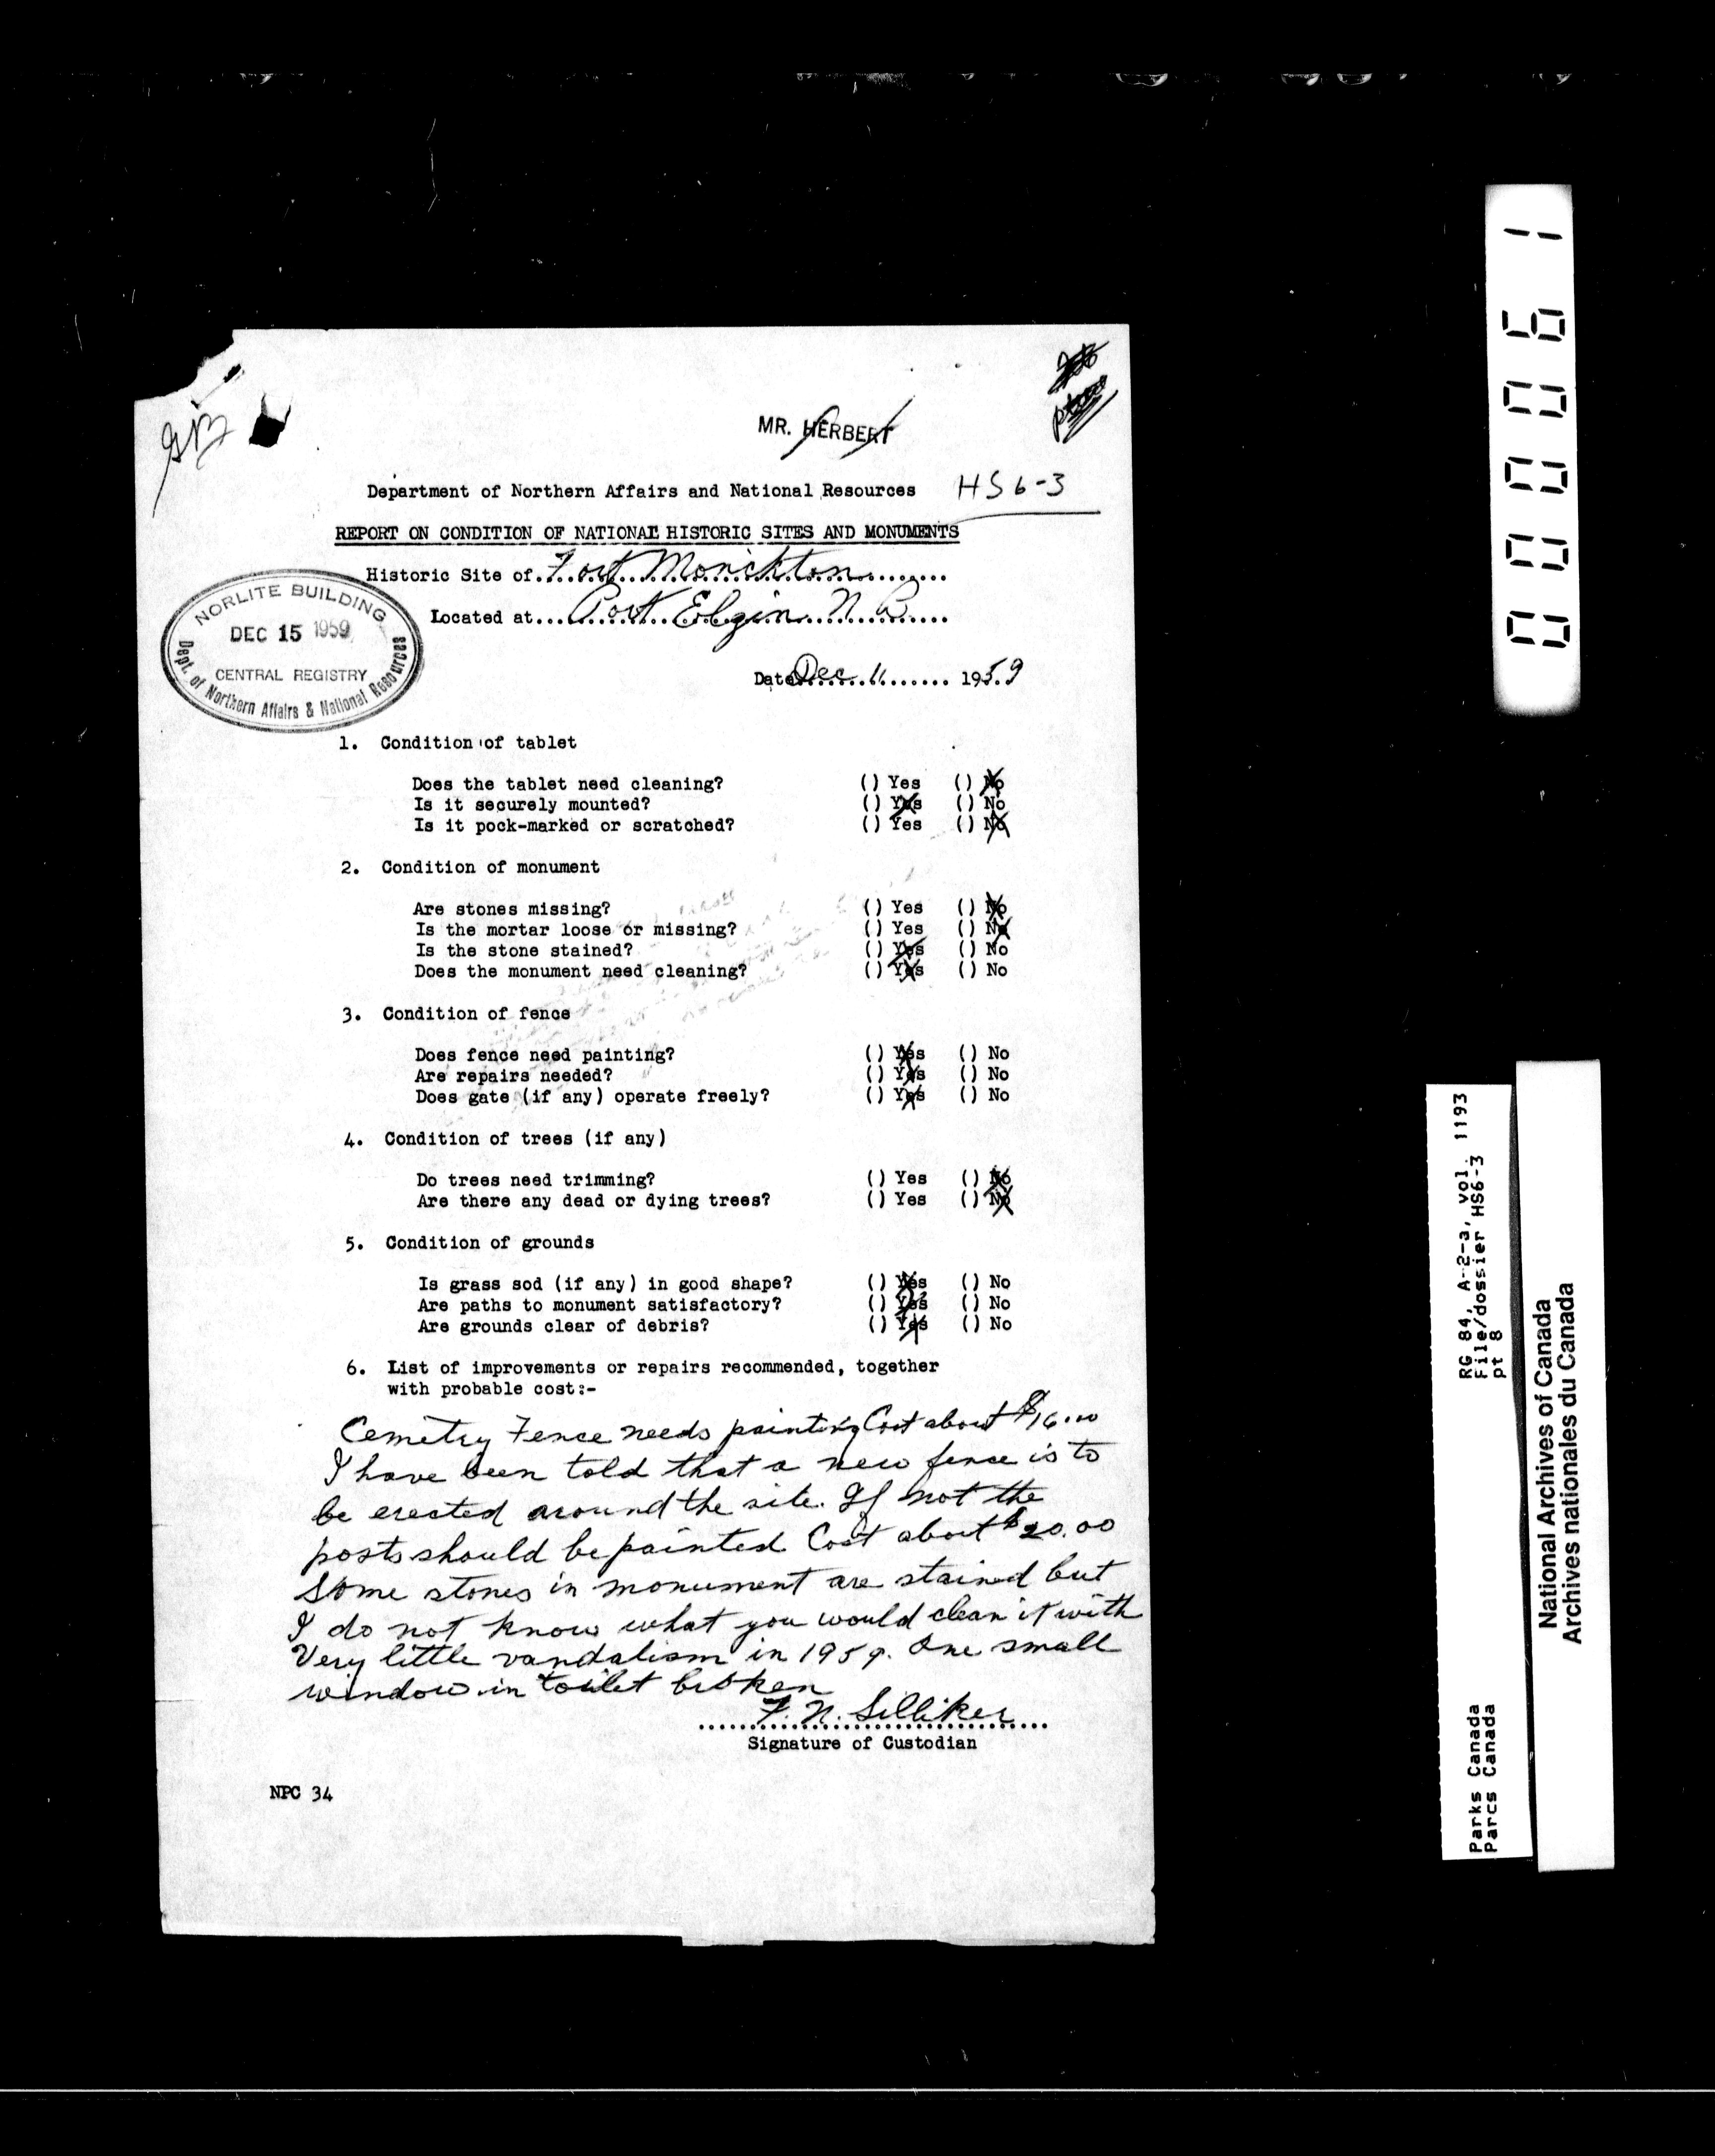 MR. HERBERT
Department of Northern Affairs and National Resources HS6-3
REPORT ON CONDITION OF NATIONAL HISTORIC SITES AND MONUMENTS
Historic Site of Fort Monckton
Located at Port Elgin N.B.
NORLITE BUILDING
DEC 15 1959
CENTRAL REGISTRY
Dept. of Northern Affairs & National Resources
Date Dec 11 1959
1. Condition of tablet
Does the tablet need cleaning? () Yes () No
Is it securely mounted? () Yes () No
Is it pock-marked or scratched? () Yes () No
2. Condition of monument
Are stones missing? () Yes () No
Is the mortar loose or missing? () Yes () No
Is the stone stained? () Yes () No
Does the monument need cleaning? () Yes () No
3. Condition of fence
Does fence need painting? () Yes () No
Are repairs needed? () Yes () No
Does gate (if any) operate freely? () Yes () No
4. Condition of trees (if any)
Do trees need trimming? () Yes () No
Are there any dead or dying trees? () Yes () No
5. Condition of grounds
Is grass sod (if any) in good shape? () Yes () No
Are paths to monument satisfactory? () Yes () No
Are grounds clear of debris? () Yes () No
6. List of improvements or repairs recommended, together
with probable cost:-
Cemetry Fence needs painting Cost about $16.00
I have been told that a new fence is to
be erected around the site. If not the
posts should be painted Cost about $20.00
Some stones in monument are stained but
I do not know what you would clean it with
Very little vandalism in 1959. One small
window in toilet broken
F. N. Silliker
Signature of Custodian
NPC 34
000061
RG 84, A-2-a, vol. 1193
File/dossier HS6-3
pt 8
Parks Canada
Parcs Canada
National Archives of Canada
Archives nationales du Canada